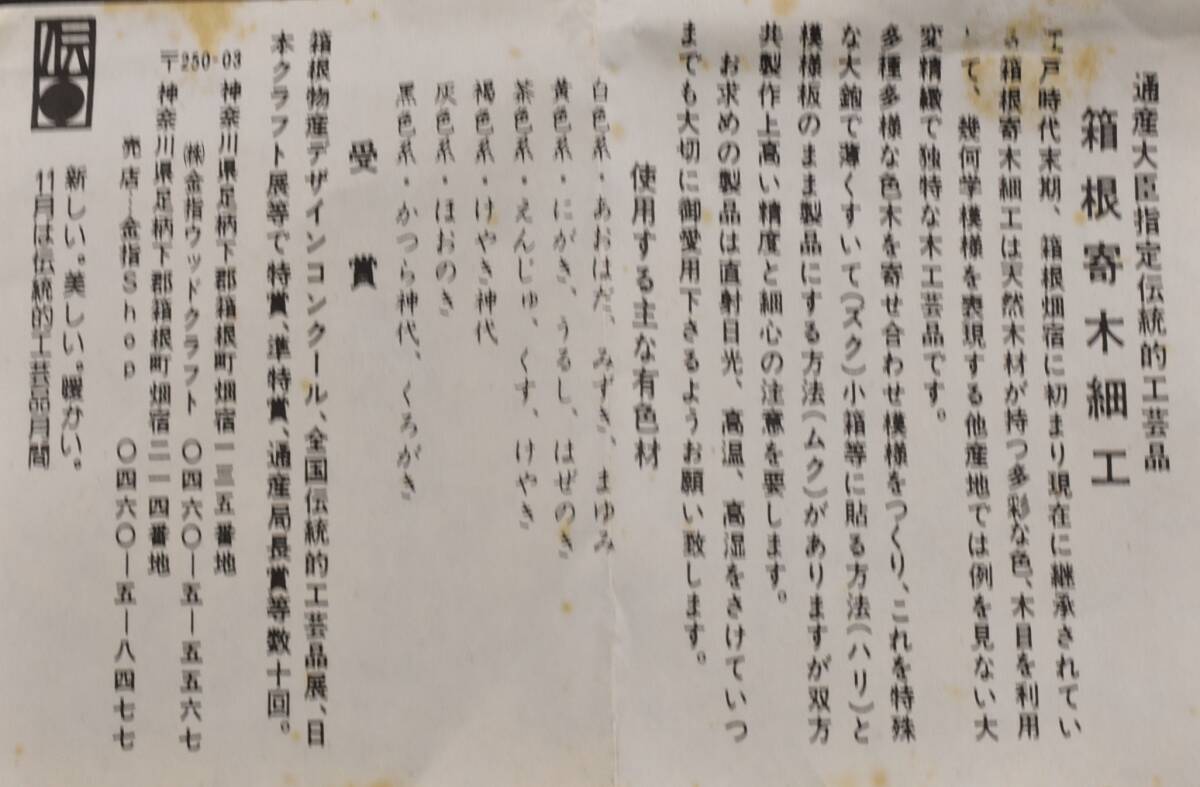 通産大臣指定伝統的工芸品
箱根寄木細工
江戸時代末期、箱根畑宿に初まり現在に継承されてい
る箱根寄木細工は天然木材が持つ多彩な色、木目を利用
して、幾何学模様を表現する他産地では例を見ない大
変精緻で独特な木工芸品です。
多種多様な色木を寄せ合わせ模様をつくり、これを特殊
な大鉋で薄くすいて(ズク)小箱等に貼る方法(ハリ)と
模様板のまま製品にする方法(ムク)がありますが双方
共製作上高い精度と細心の注意を要します。
お求めの製品は直射日光、高温、高湿をさけていつ
までも大切に御愛用下さるようお願い致します。
使用する主な有色材
白色系・あおはだ、みずき、まゆみ
黄色系・にがき、うるし、はぜのき
茶色系・えんじゅ、くす、けやき
褐色系・けやき神代
灰色系・ほおのき
黒色系・かつら神代、くろがき
受賞
箱根物産デザインコンクール、全国伝統的工芸品展、日
本クラフト展等で特賞、準特賞、通産局長賞等数十回。
〒250-03 神奈川県足柄下郡箱根町畑宿一三五番地
㈱金指ウッドクラフト 〇四六〇―五―五五六七
〒 神奈川県足柄下郡箱根町畑宿二一四番地
売店…金指Shop 〇四六〇―五―八四七七
伝
新しい。美しい。暖かい。
11月は伝統的工芸品月間